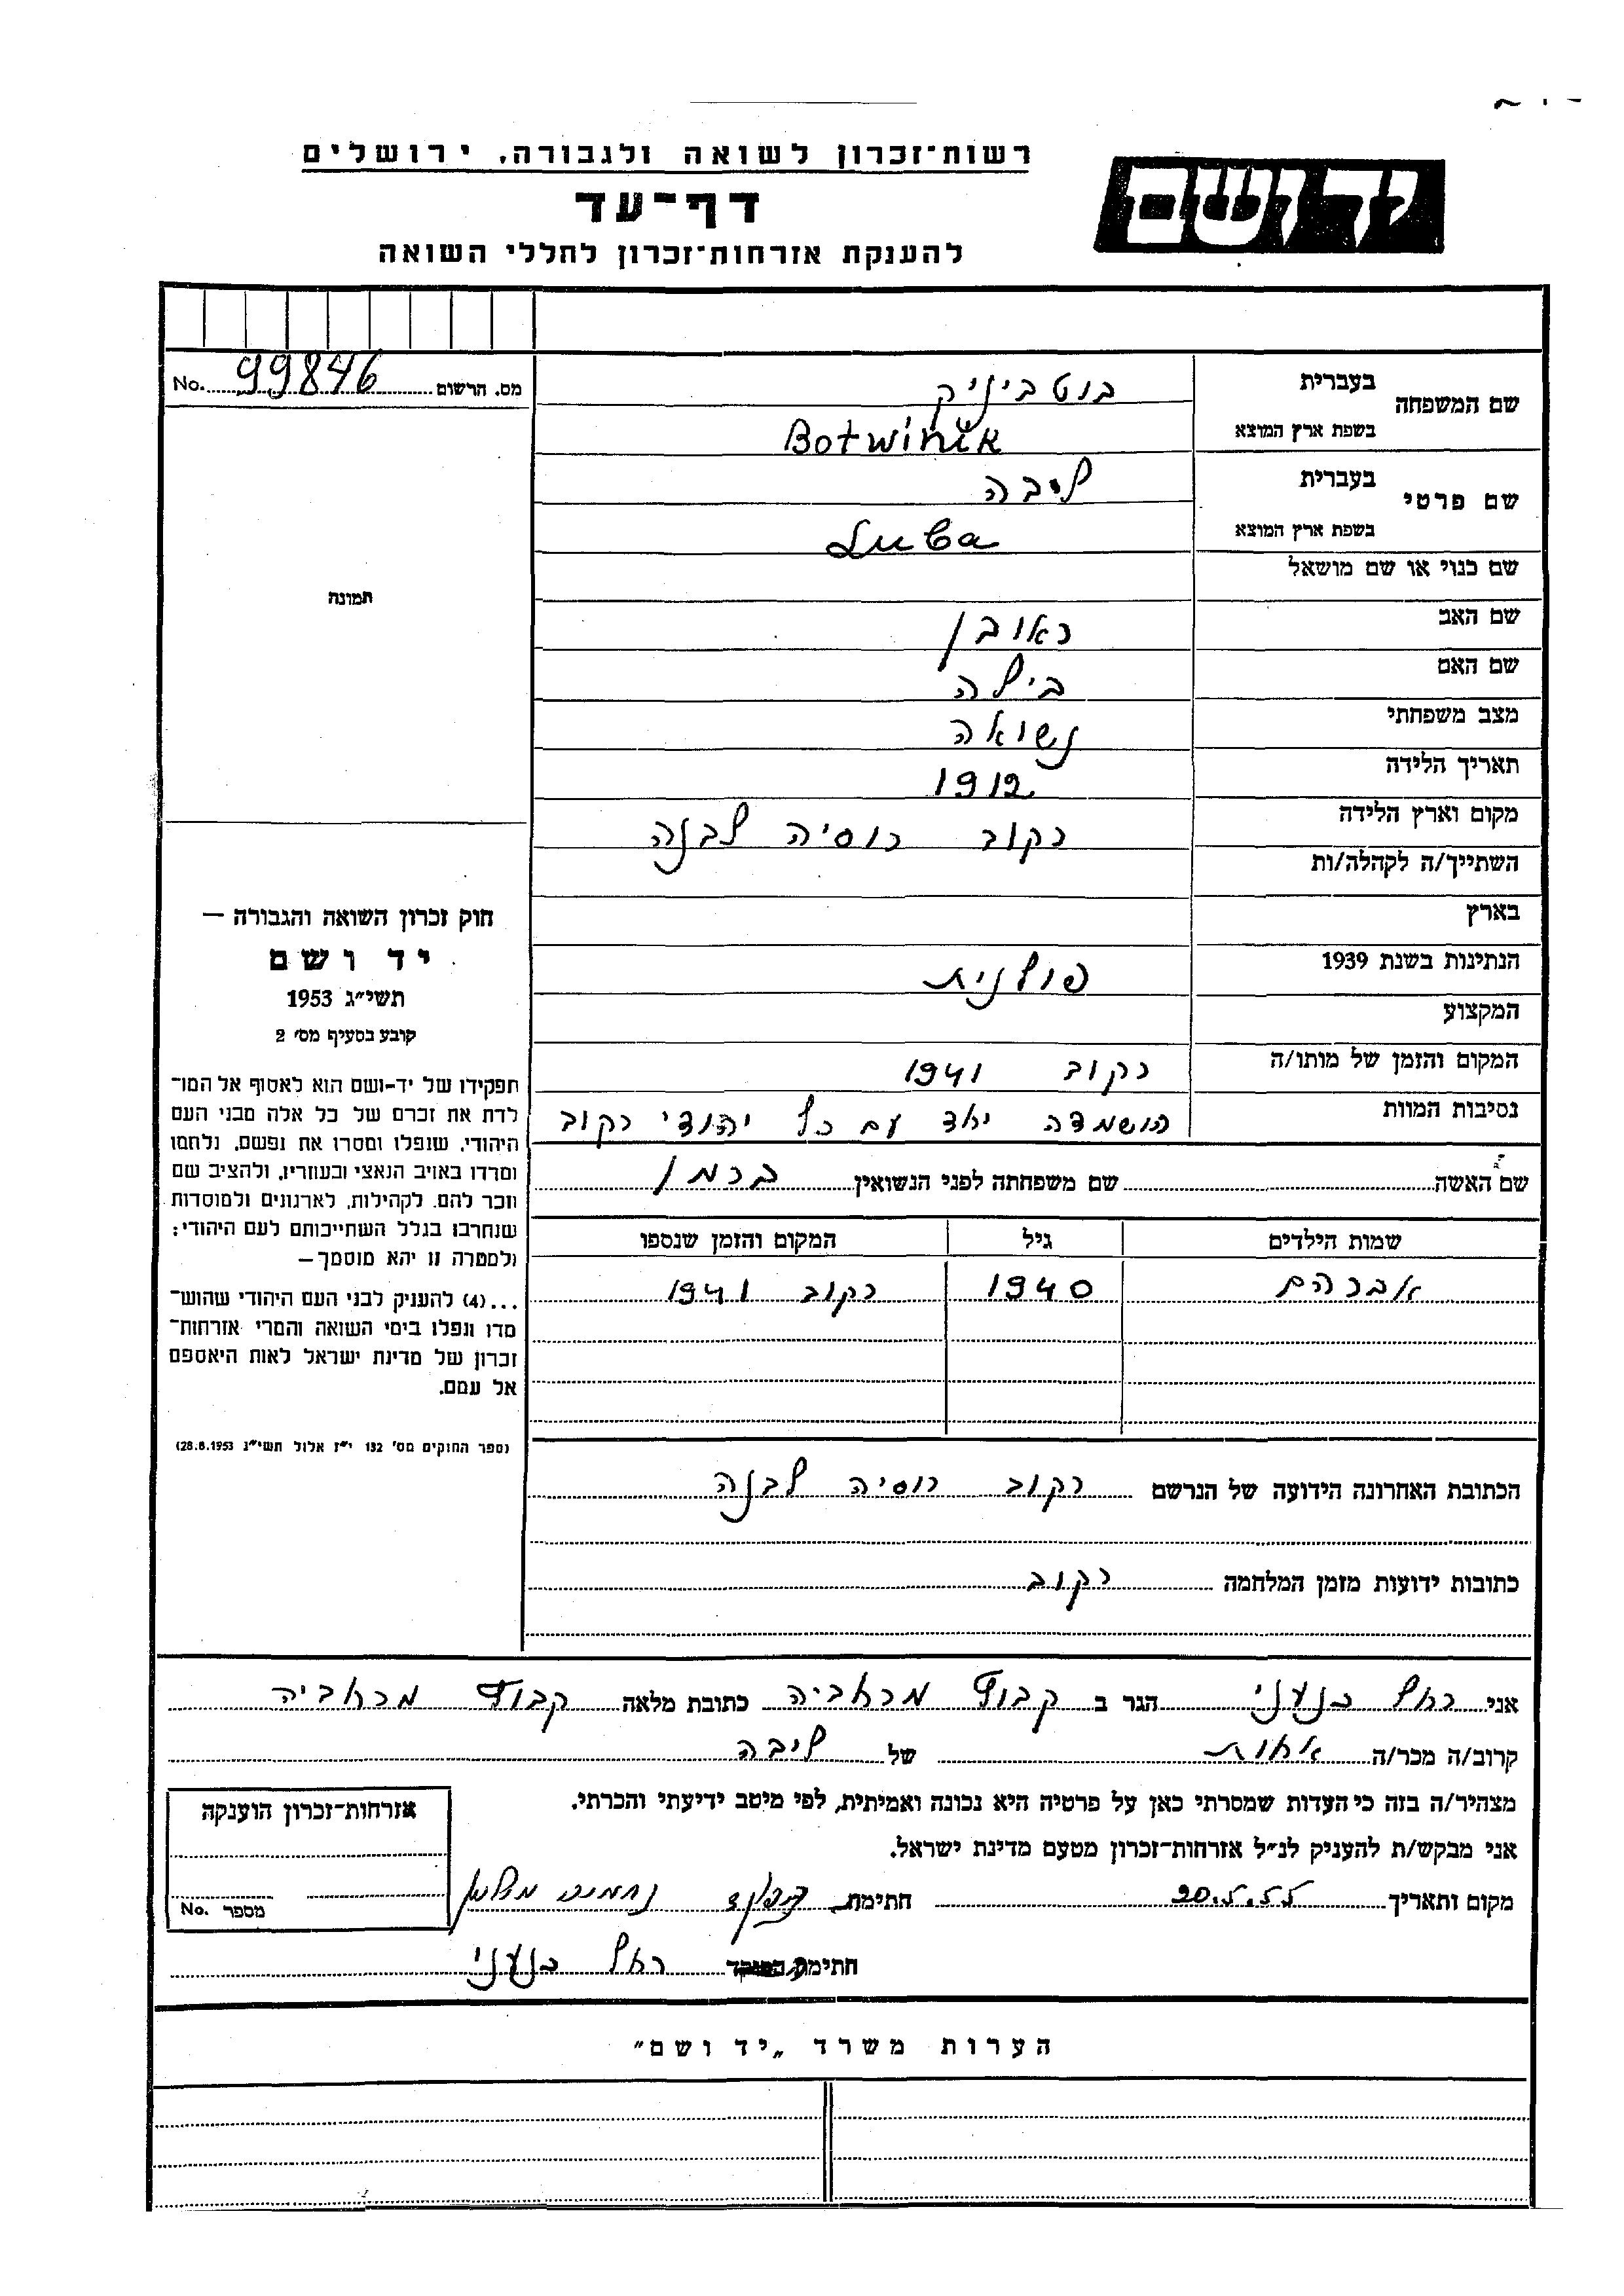 רשות־זכרון לשואה ולגבורה, ירושלים
יד ושם
דף־עד
להענקת אזרחות־זכרון לחללי השואה
מס. הרשום 99846 No.
שם המשפחה
בעברית בוטביניק
בשפת ארץ המוצא Botwinik
שם פרטי
בעברית ליבה
בשפת ארץ המוצא Luba
שם כנוי או שם מושאל
שם האב ראובן
שם האם בילה
מצב משפחתי נשואה
תאריך הלידה 1912
מקום וארץ הלידה רקוב רוסיה לבנה
השתייך/ה לקהלה/ות
בארץ
הנתינות בשנת 1939 פולנית
המקצוע
המקום והזמן של מותו/ה רקוב 1941
נסיבות המוות הושמדה יחד עם כל יהודי רקוב
שם האשה שם משפחתה לפני הנשואין ברמן
שמות הילדים גיל המקום והזמן שנספו
אברהם 1940 רקוב 1941
הכתובת האחרונה הידועה של הנרשם רקוב רוסיה לבנה
כתובות ידועות מזמן המלחמה רקוב
תמונה
חוק זכרון השואה והגבורה —
יד ושם
תשי״ג 1953
קובע בסעיף מס׳ 2
תפקידו של יד-ושם הוא לאסוף אל המו־
לדת את זכרם של כל אלה מבני העם
היהודי, שנפלו ומסרו את נפשם, נלחמו
ומרדו באויב הנאצי ובעוזריו, ולהציב שם
וזכר להם, לקהילות, לארגונים ולמוסדות
שנחרבו בגלל השתייכותם לעם היהודי;
ולמטרה זו יהא מוסמך —
...(4) להעניק לבני העם היהודי שהוש־
מדו ונפלו בימי השואה והמרי אזרחות־
זכרון של מדינת ישראל לאות היאספם
אל עמם.
(ספר החוקים מס׳ 132 י״ז אלול תשי״ג 28.8.1953)
אני רחל כנעני הגר ב קבוץ מרחביה כתובת מלאה קבוץ מרחביה
קרוב/ה מכר/ה אחות של ליבה
מצהיר/ה בזה כי העדות שמסרתי כאן על פרטיה היא נכונה ואמיתית, לפי מיטב ידיעתי והכרתי.
אני מבקש/ת להעניק לנ״ל אזרחות־זכרון מטעם מדינת ישראל.
מקום ותאריך 20.5.55 חתימת נחמיה
חתימת רחל כנעני
אזרחות־זכרון הוענקה
מספר No.
הערות משרד „יד ושם״